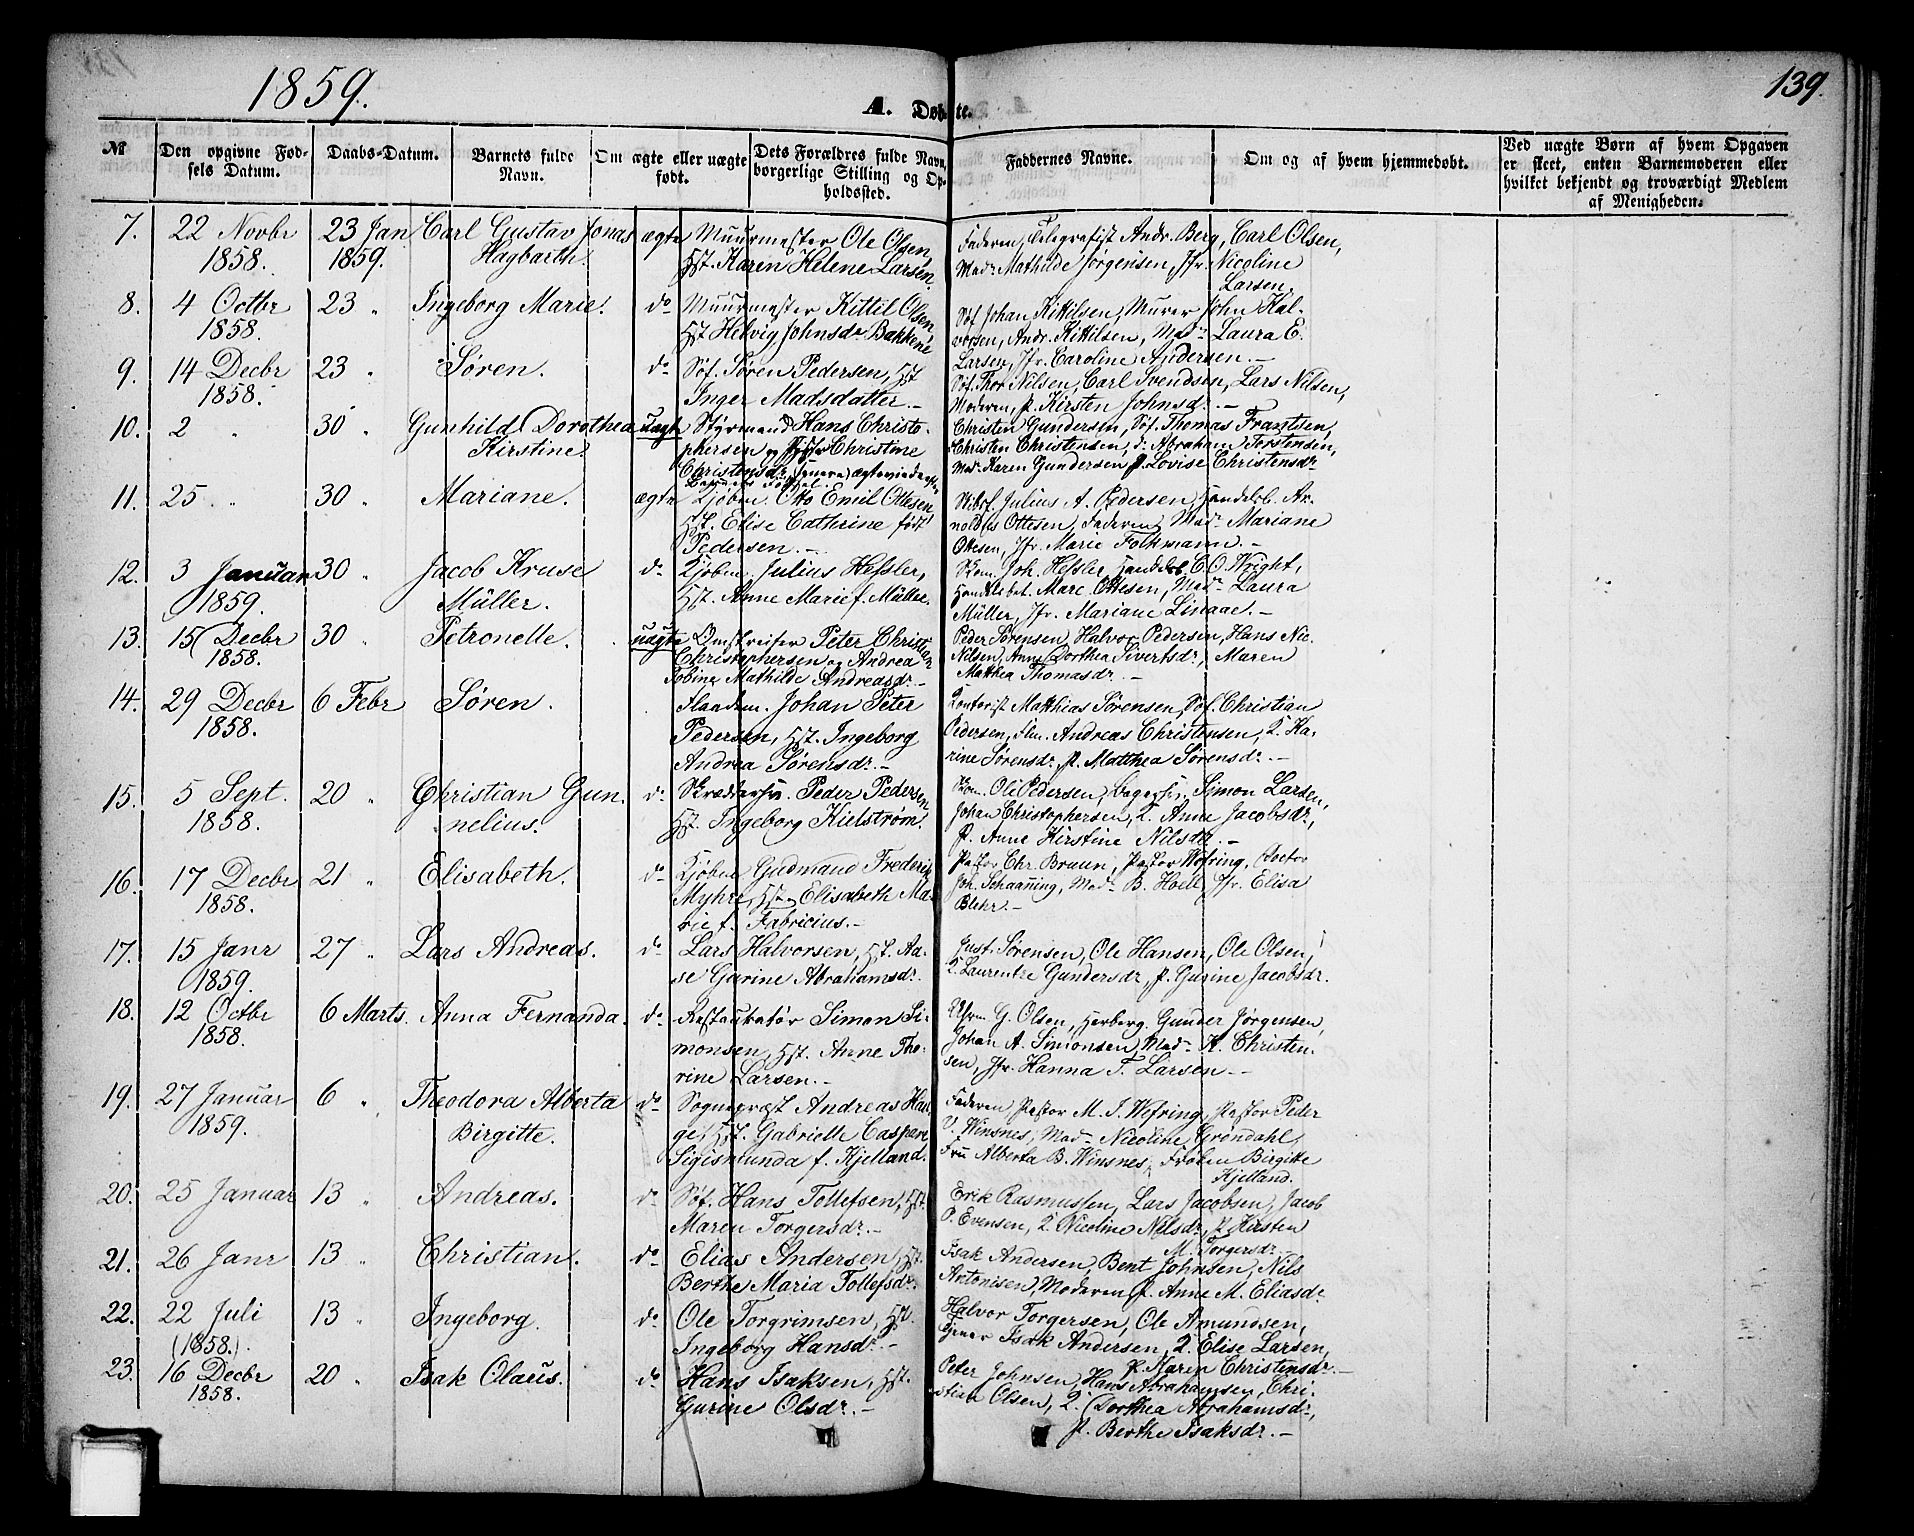 1859.
A. Døbte.
139.
No
Den opgivne Fød-
sels Datum.
Daabs-Datum.
Barnets fulde
Navn.
Om ægte eller uægte
født.
Dets Forældres fulde Navn,
borgerlige Stilling og Op-
holdssted.
Faddernes Navne.
Om og af hvem hjemmedøbt.
Ved uægte Børn af hvem Opgaven
er skeet, enten Barnemoderen eller
hvilket bekjendt og troværdigt Medlem
af Menigheden.
7. 22 Novbr 23 Jan Carl Gustav Jonas ægte Muurmester Ole Olsen, Faderen, Telegrafist Andr. Berg, Carl Olsen,
1858. 1859. Hagbarth. Hst. Karen Helene Larsen. Mad. Mathilde Jørgensen, Jfr. Nicoline
Larsen.
8. 4 Octbr 23 " Ingeborg Marie. do Muurmester Kittil Olsen, Søf Johan Kittilsen, Murer John Hal-
1858. Hst Helvig Johnsdr Bakkene vorsen, Andr. Kittilsen, Mad. Laura E.
Larsen, Jfr. Caroline Andersen.-
9. 14 Decbr 23 " Søren. do Søf. Søren Pedersen, Hst Søf. Thor Nilsen, Carl Svendsen, Lars Nilsen,
1858. Inger Madsdatter.- Moderen, p. Kirsten Johnsdr.-
10. 2 " 30 " Gunhild Dorothea uægte Styrmand Hans Christo- Christen Gundersen, Søf. Thomas Frantsen,
Kirstine phersen og Christine Christen Christensen, Abraham Torstensen,
Christensdr. Mad. Karen Gundersen p. Lovise Christensdr
11. 25 " 30 " Mariane. ægte Kjøbm. Otto Emil Ottesen Skibsf. Julius A. Pedersen, Handelsb. Ar-
Hst. Elise Cathrine født noldus Ottesen, Faderen, Mad. Mariane
Pedersen.- Ottesen, Jfr. Marie Folkmann.-
12. 3 Januar 30 " Jacob Kruse do Kjøbm. Julius Hessler, Skom. Joh. Hessler, Handelsb. C. O. Wright,
1859. Müller. Hst. Anne Marie f. Müller. Handelsbet. Marc. Ottesen, Mad. Laura
Müller, Jfr. Mariane Linaae.-
13. 15 Decbr 30 " Petronelle. uægte Omstreifer Peter Christian Peder Sørensen, Halvor Pedersen, Hans Nic.
1858. Christophersen og Andrea Nilsen, Anne Dorthea Sivertsdr, Maren
Tobine Mathilde Andreasdr.- Matthea Thomasdr.-
14. 29 Decbr 6 Febr Søren. Johan Peter Kontorist Matthias Sørensen, Søf. Christian
1858. Pedersen, Hst. Ingeborg Pedersen, Andreas Christensen, K. Ka-
Andrea Sørensdr.- rine Sørensdr. p. Matthea Sørensdr.-
15. 5 Sept. 20 " Christian Gun- do Skræddersv. Peder Pedersen Skom. Ole Pedersen, Bagersv. Simon Larsen,
1858. nelius. Hst. Ingeborg Kielstrøm. Johan Christophersen, K. Anne Jacobsdr,
p. Anne Kirstine Nilsdr.-
16. 17 Decbr 21 " Elisabeth. do Kjøbm Gudmand Frederik Pastor Chr. Bruun, Pastor Wefring, Doctor
1858. Myhre, Hst. Elisabeth Ma- Joh. Schaaning, Mad. B. Hoell, Jfr. Elisa
rie f. Fabricius.- Blehr.-
17. 15 Janr 27 " Lars Andreas. do Lars Halvorsen, Hst. Aa- Just. Sørensen, Ole Hansen, Ole Olsen,
1859. se Gurine Abrahamsdr. K. Laurentze Gundersdr, p. Gurine Jacobsdr.
18. 12 Octbr 6 Marts. Anna Fernanda. do Restauratør Simon Si- G. Olsen, Herberg. Gunder Jørgensen,
1858. monsen, Hst. Anne Tho- Johan A. Simonsen, Mad. K. Christen-
rine Larsen.- sen, Jfr. Hanna F. Larsen.-
19. 27 Januar 6 " Theodora Alberta do Sognepræst Andreas Hau- Faderen, Pastor M. J. Wefring, Pastor Peder
1859. Birgitte. ge, Hst. Gabrielle Caspare V. Winsnes, Mad. Nicoline Grøndahl,
Sigismunda f. Kjelland. Fru Alberta B. Winsnes, Frøken Birgitte
Kjelland.
20. 25 Januar 13 " Andreas. do Søf. Hans Tollefsen, Hst. Erik Rasmussen, Lars Jacobsen, Jacob
Maren Torgersdr.- P. Evensen, K. Nicoline Nilsdr, p. Kirsten
M. Torgersdr.
21. 26 Janr 13 " Christian. do Elias Andersen, Hst. Isak Andersen, Bent Johnsen, Nils
Berthe Maria Tollefsdr. Antonisen, Moderen p. Anne M. Eliasdr
22. 22 Juli 13 " Ingeborg. do Ole Torgrimsen, Hst. Halvor Torgersen, Ole Amundsen,
(1858.) Ingeborg Hansdr.- Isak Andersen, K. Elise Larsen,
p. Maren Christensdr.-
23. 16 Decbr 20 " Isak Olaus. do Hans Isaksen, Hst. Peter Johnsen, Hans Abrahamsen, Chri-
1858. Gurine Olsdr.- stian Olsen, K. Dorthea Abrahamsdr,
p. Berthe Isaksdr.-